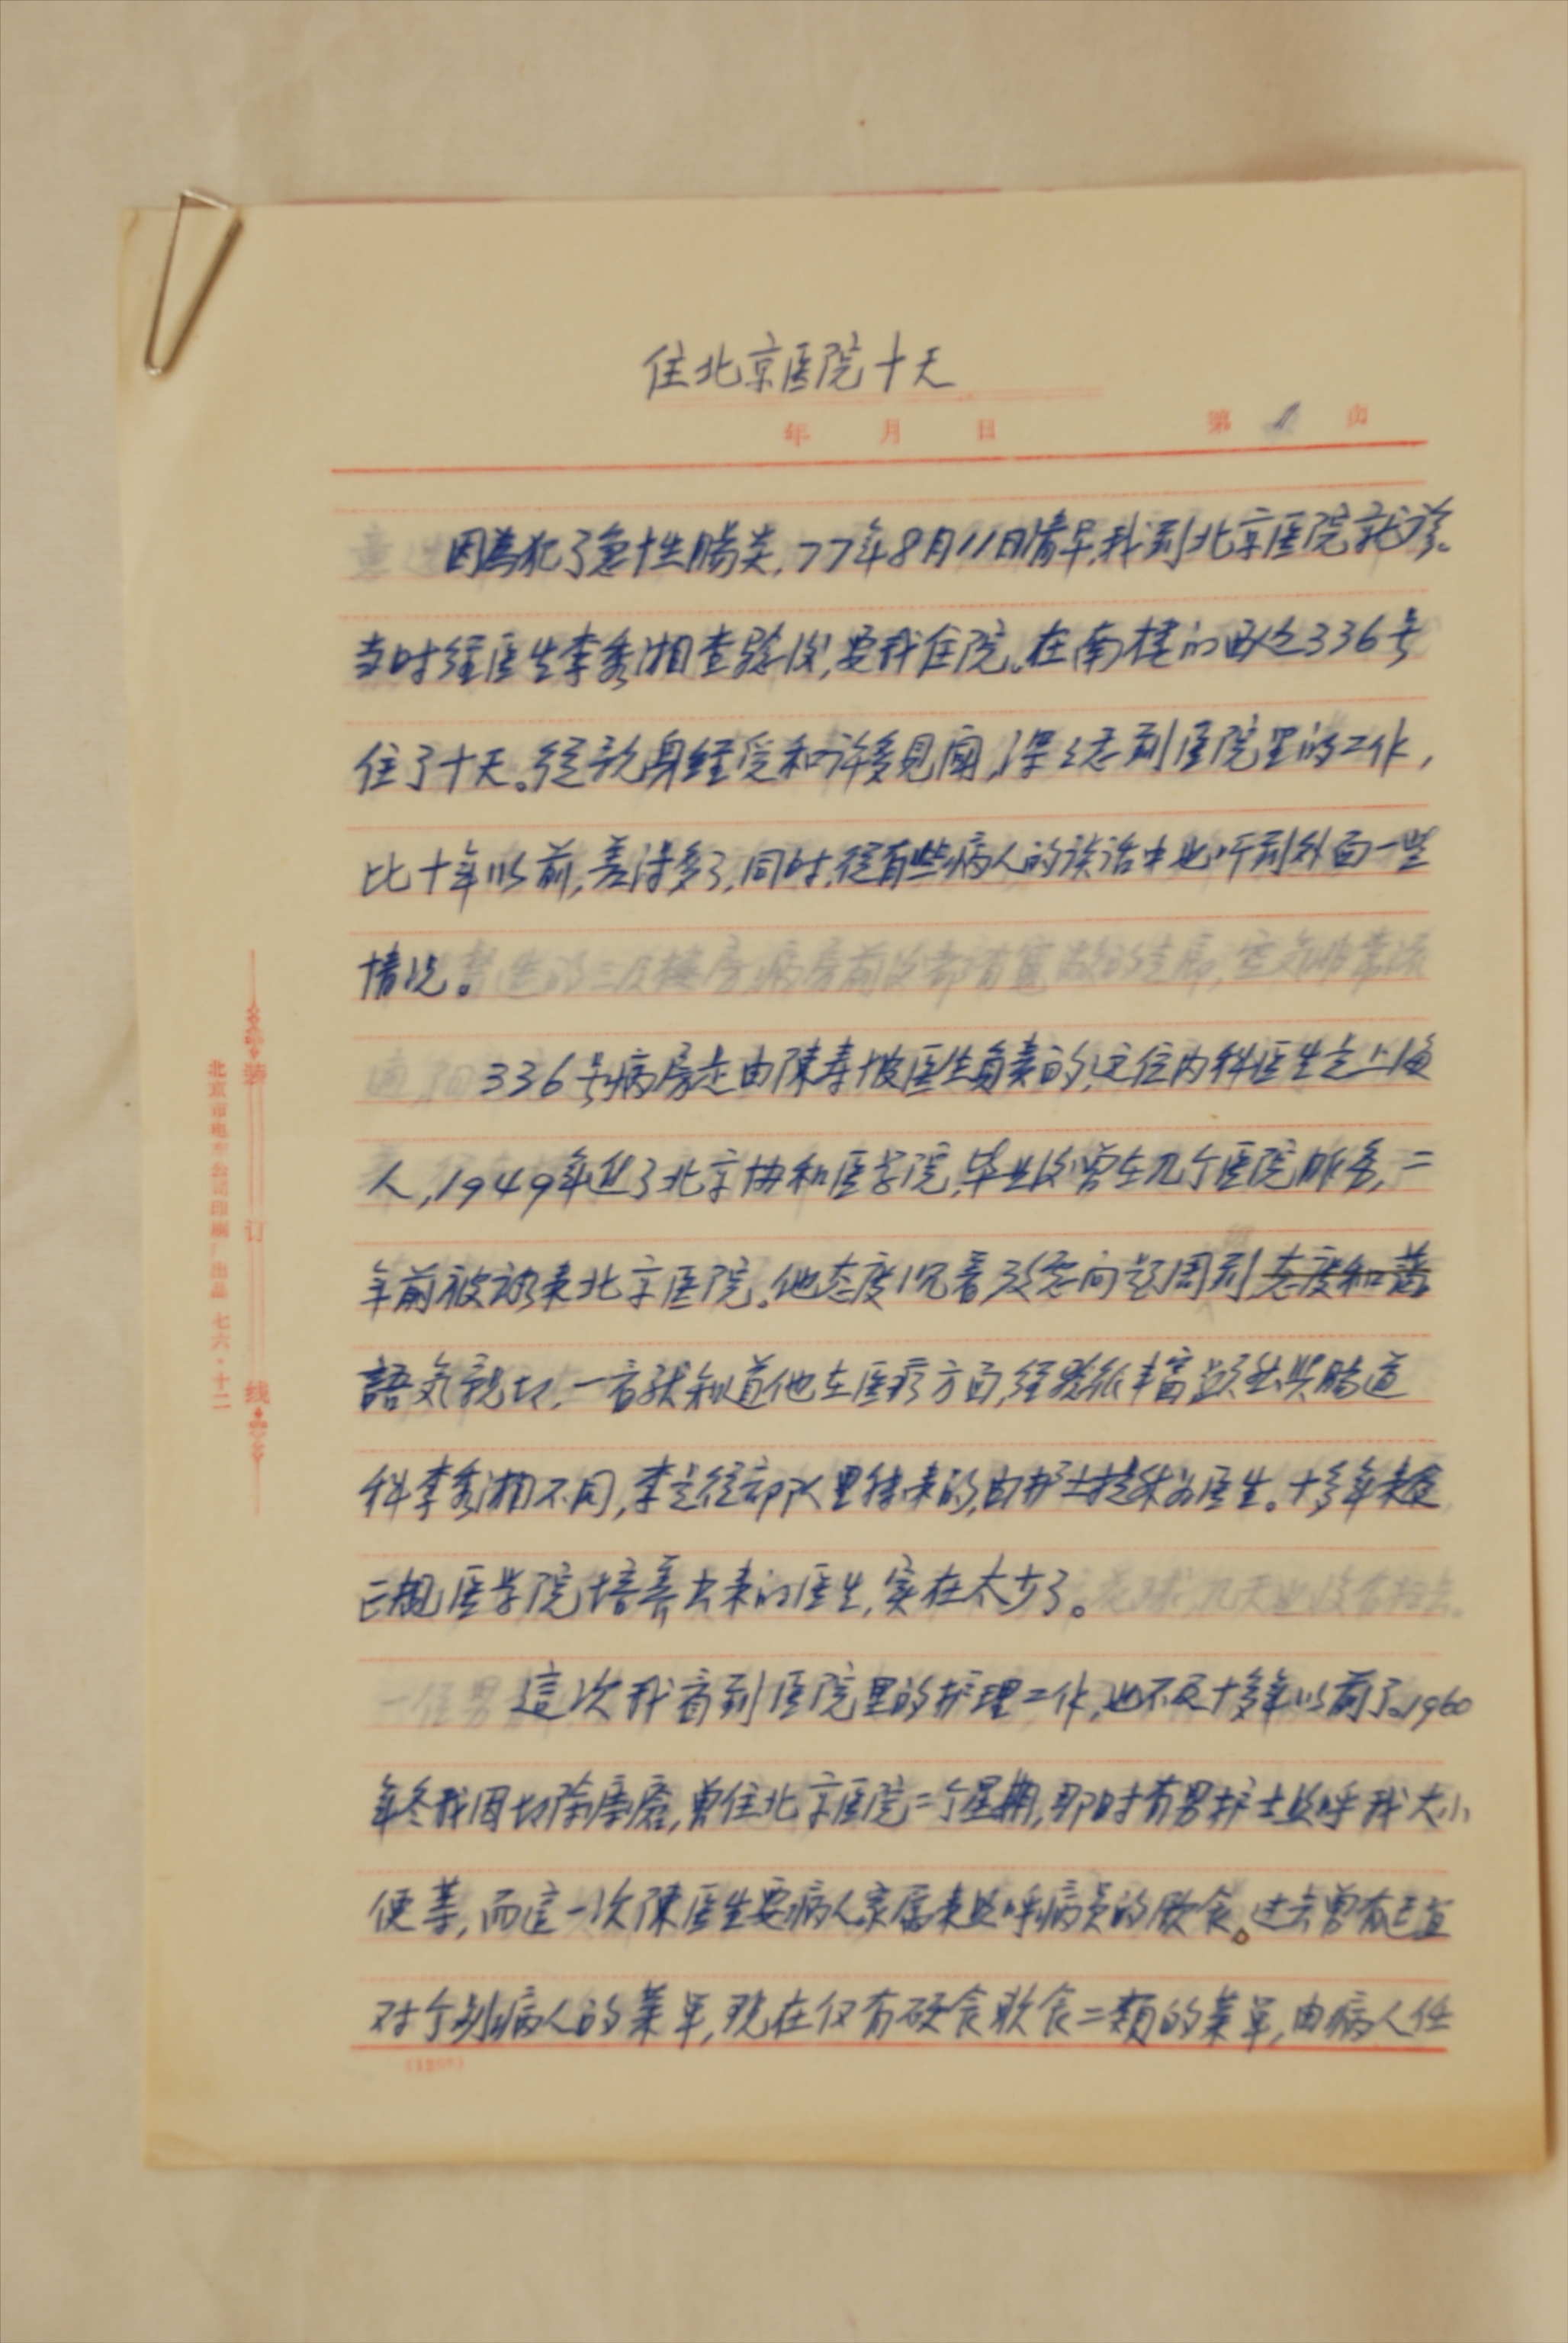 住北京医院十天
年 月 日 第 1 页
因為犯了急性腸炎，77年8月11日清早，我到北京医院就诊。
当时經医生李秀湘查驗后，要我住院。在南楼的西边336号
住了十天。從亲身經受和许多見闻，深之感到医院里的工作，
比十年以前，差得多了，同时，從有些病人的谈话中也听到外面一些
情况。
336号病房是由陳寿坡医生負責的，这位内科医生是上海
人，1949年进了北京协和医学院，毕业后曾在几个医院服务，二
年前被调来北京医院。他态度沉着考虑问题周到态度和蔼
語気親切，一看就知道他在医疗方面，经验很丰富，
科李秀湘不同，李是從部队里轉来的，由护士提升为医生。十多年来
正规医学院培养出来的医生，实在太少了。
這次我看到医院里的护理工作，也不及十多年以前了。1960
年冬我因切除痔瘡，曾住北京医院二个星期，那时有男护士照呼我大小
便等，而這一次陳医生要病人亲属来照呼病员的飲食。过去曾有
对个别病人的菜单，现在仅有硬食軟食二類的菜单，由病人任
装 订 线
北京市电车公司印刷厂出品 七六·十二